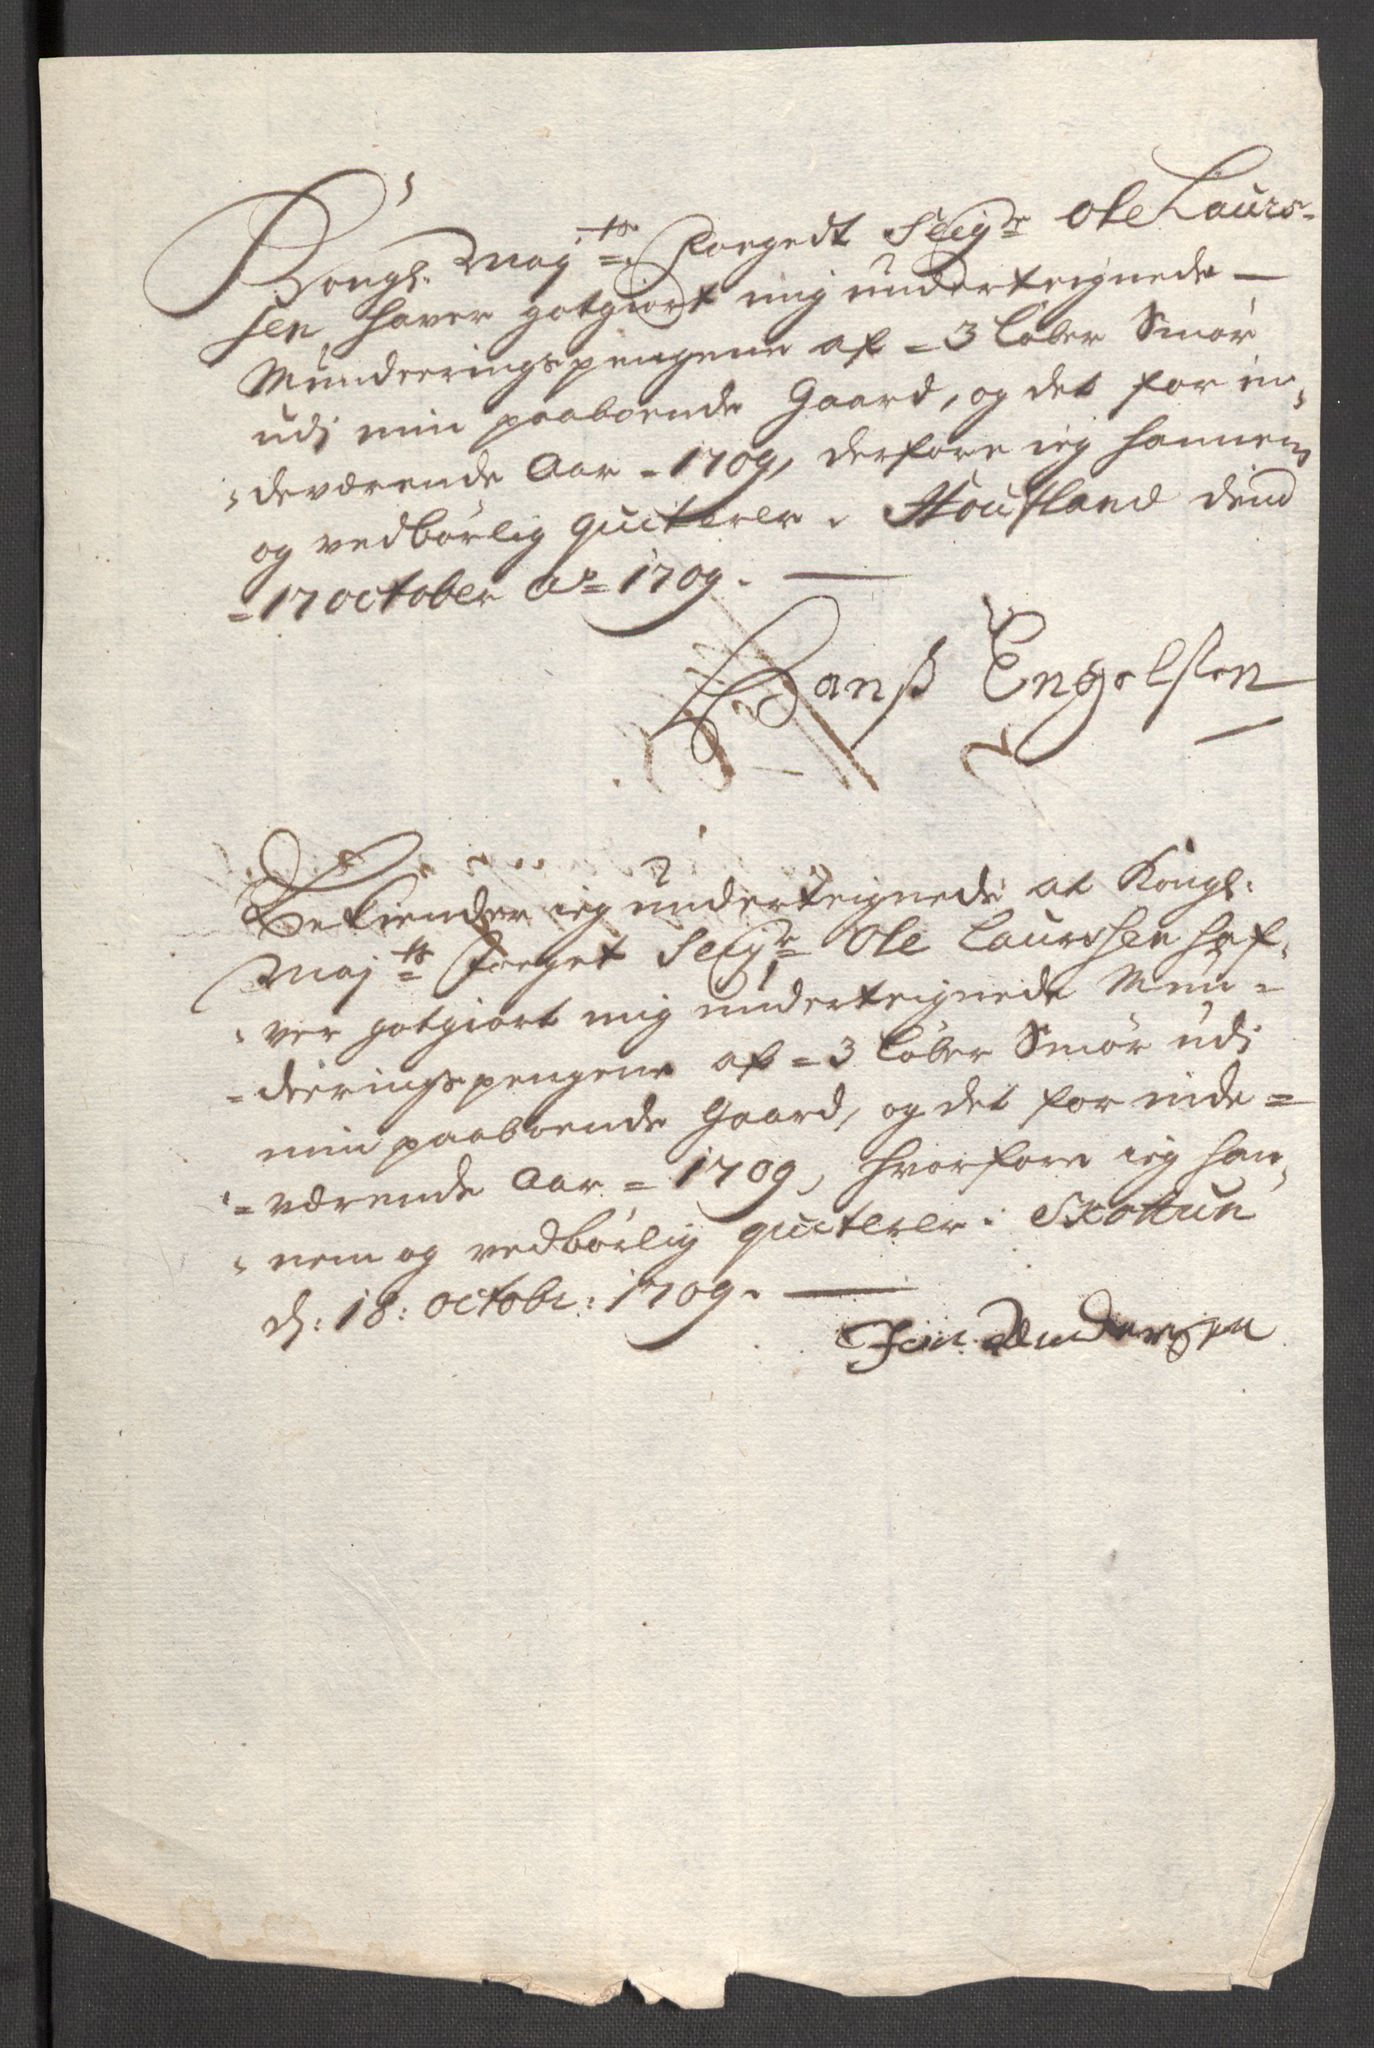 Kongl: Maÿ:ts Foegedt Seigr Ole Laurs-
sen hafver gotgiort mig underteignede
Munderingspengene af = 3 Løber Smør
udj min paaboende Gaard, og det for in,
, deværende Aar = 1709, derfore ieg hannem
og vedbørlig qviterer. Houfland dend
= 17 october Ao = 1709.
Hanß Engelsen
Bekiender ieg underteignede at Kongl:
Maj:ts Foeget Seigr Ole Laurssen haf,
, ver gotgiort mig underteignede Mun =
= deeringspengene af = 3 Løber Smør udj
min paaboende Gaard, og det for inde =
= værende Aar = 1709, hvorfore ieg han,
, nem og vedbørlig qviterer. Skottun
d: 18: octobr: 1709.
Jon Andersen